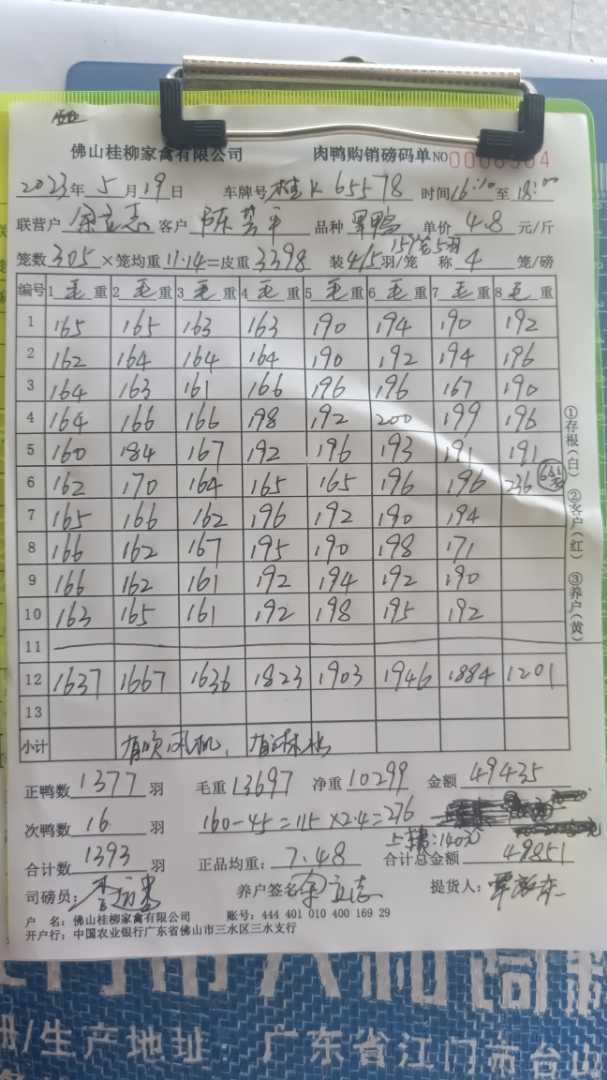 佛山桂柳家禽有限公司 肉鸭购销磅码单 NO
2023年 5月19日 车牌号 桂K 65578 时间 16:10 至 18:00
联营户 余立志 客户 陈 平 品种 鸭 单价 4.8 元/斤
15笼5羽
笼数 305 ×笼均重 11.14 =皮重 3398 装 4/5 羽/笼 称 4 笼/磅
编号 1 毛 重 2 毛 重 3 毛 重 4 毛 重 5 毛 重 6 毛 重 7 毛 重 8 毛 重
1 165 165 163 163 190 194 190 192
2 162 164 164 164 190 192 194 196
3 164 163 161 166 196 196 167 190
4 164 166 166 198 192 200 199 196
5 160 184 167 192 196 193 191 191
6 162 170 164 165 165 196 196 236
7 165 166 162 196 192 190 194
8 166 162 167 195 190 198 171
9 166 162 161 192 194 192 190
10 163 165 161 192 198 195 192
11
12 1637 1667 1636 1823 1903 1946 1884 1201
13
小计 有吹风机,有
正鸭数 1377 羽 毛重 13697 净重 10299 金额 49435
次鸭数 16 羽 160-45=115×2.4=276
140元
合计数 1393 羽 正品均重: 7.48 合计总金额 49851
司磅员: 养户签名 余立志 提货人:
户 名: 佛山桂柳家禽有限公司 账号: 444 401 010 400 169 29
开户行: 中国农业银行广东省佛山市三水区三水支行
①存根(白) ②客户(红) ③养户(黄)
/生产地址: 广东省江门市台山